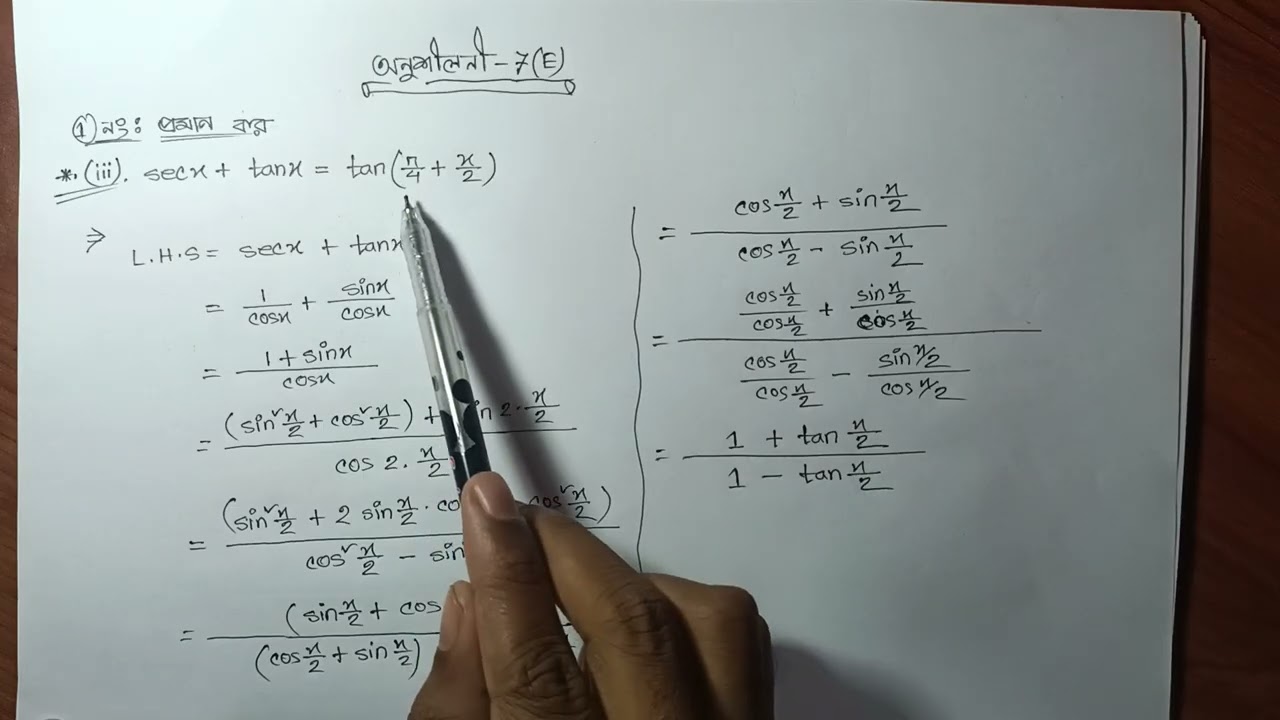 অনুশীলনী - 7(E)
①নংঃ প্রমান কর
*. (iii). secx + tanx = tan(π/4 + x/2)
⇒ L.H.S = secx + tanx
= 1/cosx + sinx/cosx
= (1 + sinx)/cosx
= ((sin²x/2 + cos²x/2) + in 2·x/2)/(cos 2·x/2)
= (sin²x/2 + 2 sinx/2 · co cos²x/2)/(cos²x/2 - sin
= (sinx/2 + cos
(cosx/2 + sinx/2)
= (cosx/2 + sinx/2)/(cosx/2 - sinx/2)
= (cosx/2/cosx/2 + sinx/2/cosx/2)/(cosx/2/cosx/2 - sinx/2/cosx/2)
= (1 + tanx/2)/(1 - tanx/2)